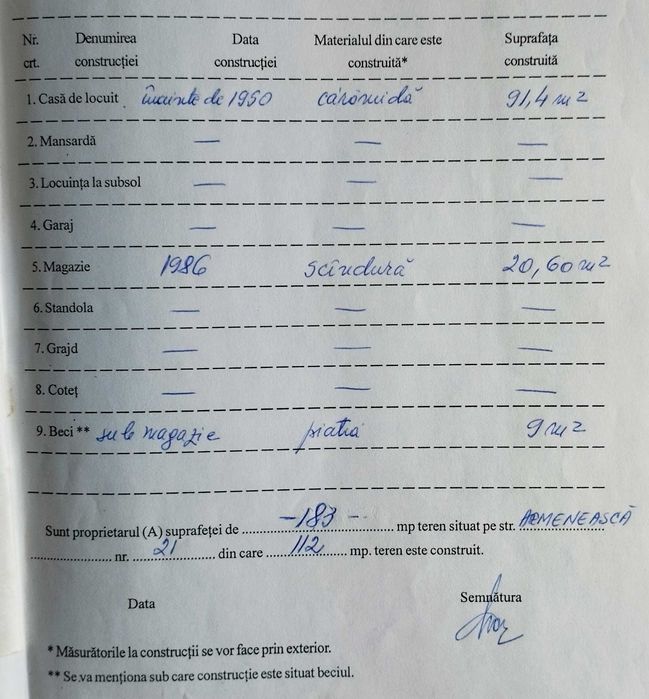 Nr. Denumirea Data Materialul din care este Suprafața
crt. construcției construcției construită* construită
1. Casă de locuit înainte de 1950 cărămidă 91,4 m2
2. Mansardă — — —
3. Locuința la subsol — — —
4. Garaj — — —
5. Magazie 1986 scîndură 20,60 m2
6. Standola — — —
7. Grajd — — —
8. Coteț — — —
9. Beci ** sub magazie piatra 9 m2
Sunt proprietarul (A) suprafeței de -183- mp teren situat pe str. ARMENEASCĂ
nr. 21 din care 112 mp. teren este construit.
Data Semnătura
* Măsurătorile la construcții se vor face prin exterior.
** Se va menționa sub care construcție este situat beciul.